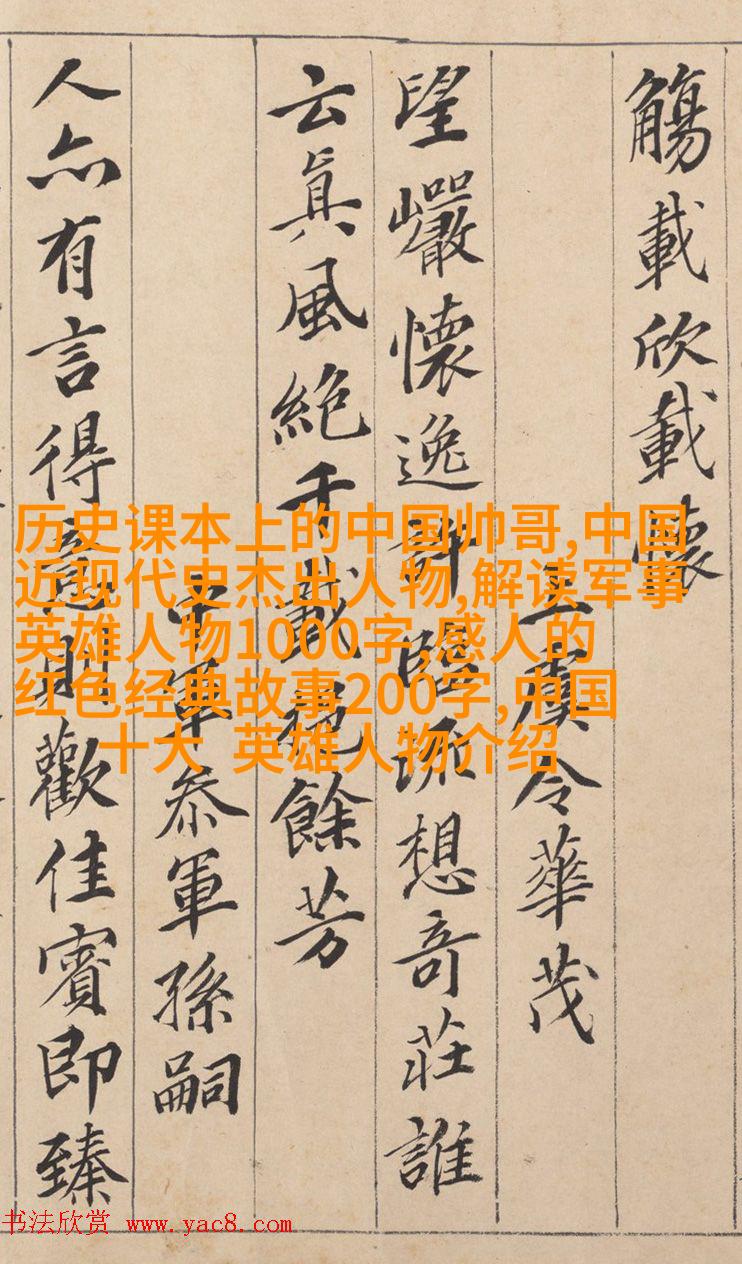 觴載欣載懷
上虞令華茂
望巖懷逸許臨流想奇莊誰
云眞風絶千載挹餘芳
中軍叅軍孫嗣
人亦有言得意則歡佳賓即臻
历史课本上的中国帅哥,中国
近现代史杰出人物,解读军事
英雄人物1000字,感人的
红色经典故事200字,中国
十大 英雄人物介绍
书法欣赏 www.yac8.com